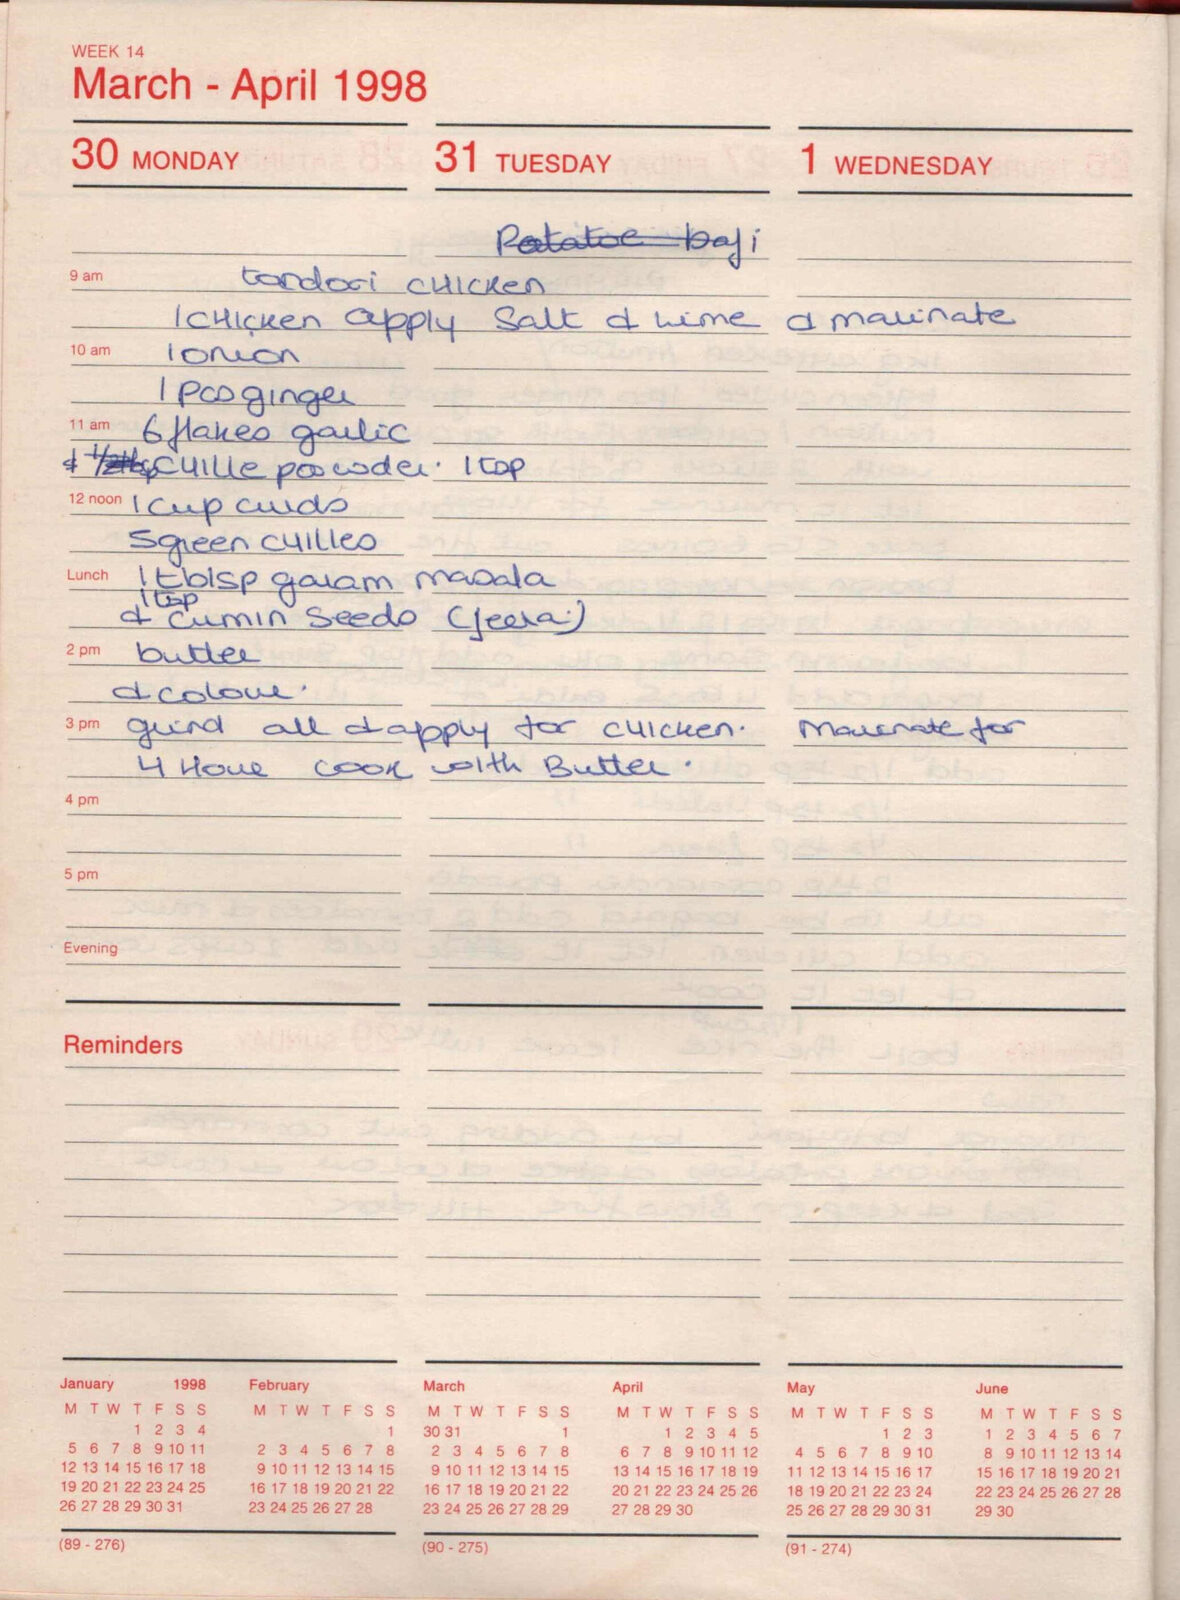 WEEK 14
March - April 1998
30 MONDAY 31 TUESDAY 1 WEDNESDAY
Potatoe baji
9 am tandori chicken
1 chicken apply salt & lime & marinate
10 am 1 onion
1 pcs ginger
11 am 6 flakes garlic
& 1/2 tsp chille poowder. 1 tsp
12 noon 1 cup curds
5 green chilles
Lunch 1 tblsp garam masala
1 tsp
& cumin seeds (jeera)
2 pm butter
& colour.
3 pm grind all & apply for chicken. Marinate for
4 Hour cook with Butter.
4 pm
5 pm
Evening
Reminders
January 1998 February March April May June
M T W T F S S M T W T F S S M T W T F S S M T W T F S S M T W T F S S M T W T F S S
1 2 3 4 1 30 31 1 1 2 3 4 5 1 2 3 1 2 3 4 5 6 7
5 6 7 8 9 10 11 2 3 4 5 6 7 8 2 3 4 5 6 7 8 6 7 8 9 10 11 12 4 5 6 7 8 9 10 8 9 10 11 12 13 14
12 13 14 15 16 17 18 9 10 11 12 13 14 15 9 10 11 12 13 14 15 13 14 15 16 17 18 19 11 12 13 14 15 16 17 15 16 17 18 19 20 21
19 20 21 22 23 24 25 16 17 18 19 20 21 22 16 17 18 19 20 21 22 20 21 22 23 24 25 26 18 19 20 21 22 23 24 22 23 24 25 26 27 28
26 27 28 29 30 31 23 24 25 26 27 28 23 24 25 26 27 28 29 27 28 29 30 25 26 27 28 29 30 31 29 30
(89 - 276) (90 - 275) (91 - 274)